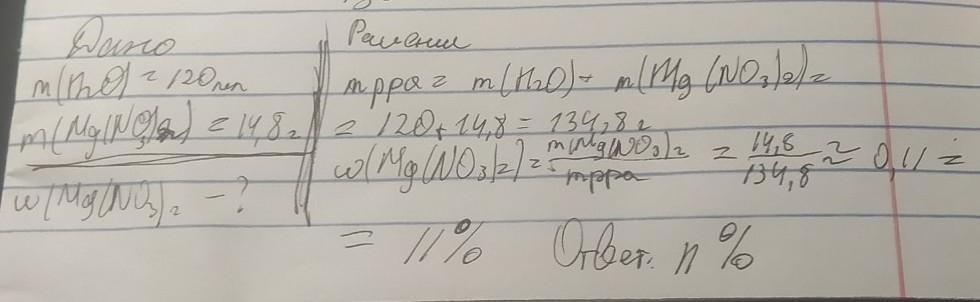 Дано
m(H2O) = 120мл
m(Mg(NO3)2) = 14,8г
w(Mg(NO3)2 - ?
Решение
mрра = m(H2O) + m(Mg(NO3)2) =
= 120 + 14,8 = 134,8г
w(Mg(NO3)2) = m(Mg(NO3)2 / mрра = 14,8 / 134,8 ≈ 0,11 =
= 11% Ответ: 11%